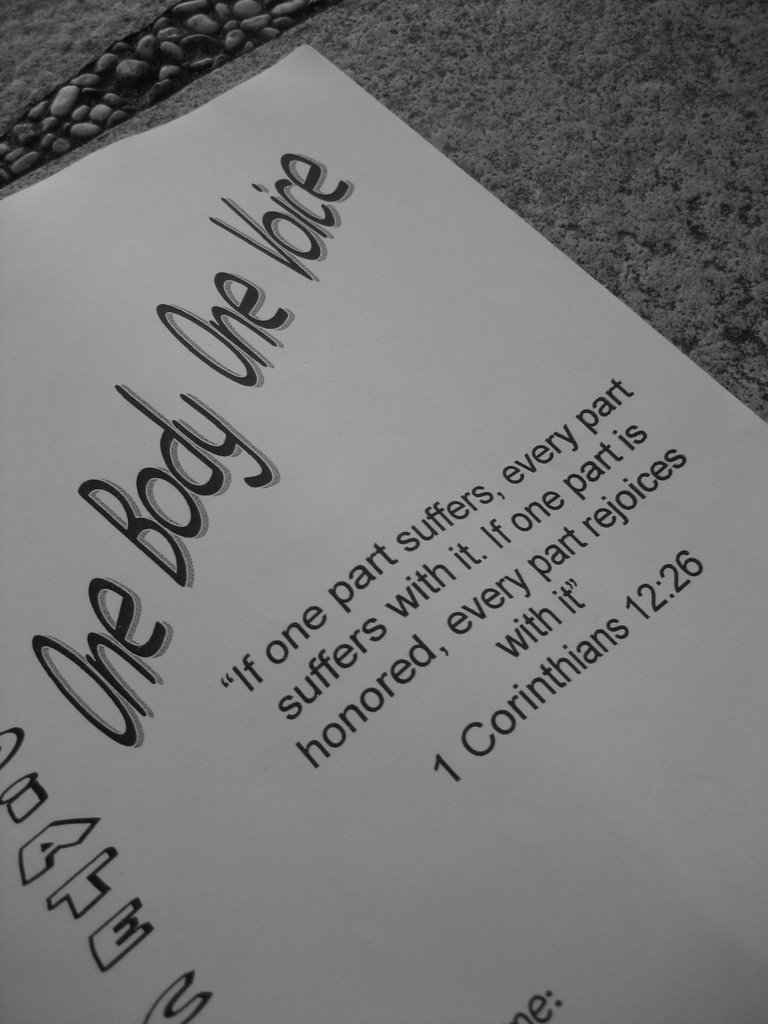 One Body One Voice
“If one part suffers, every part
suffers with it. If one part is
honored, every part rejoices
with it”
1 Corinthians 12:26